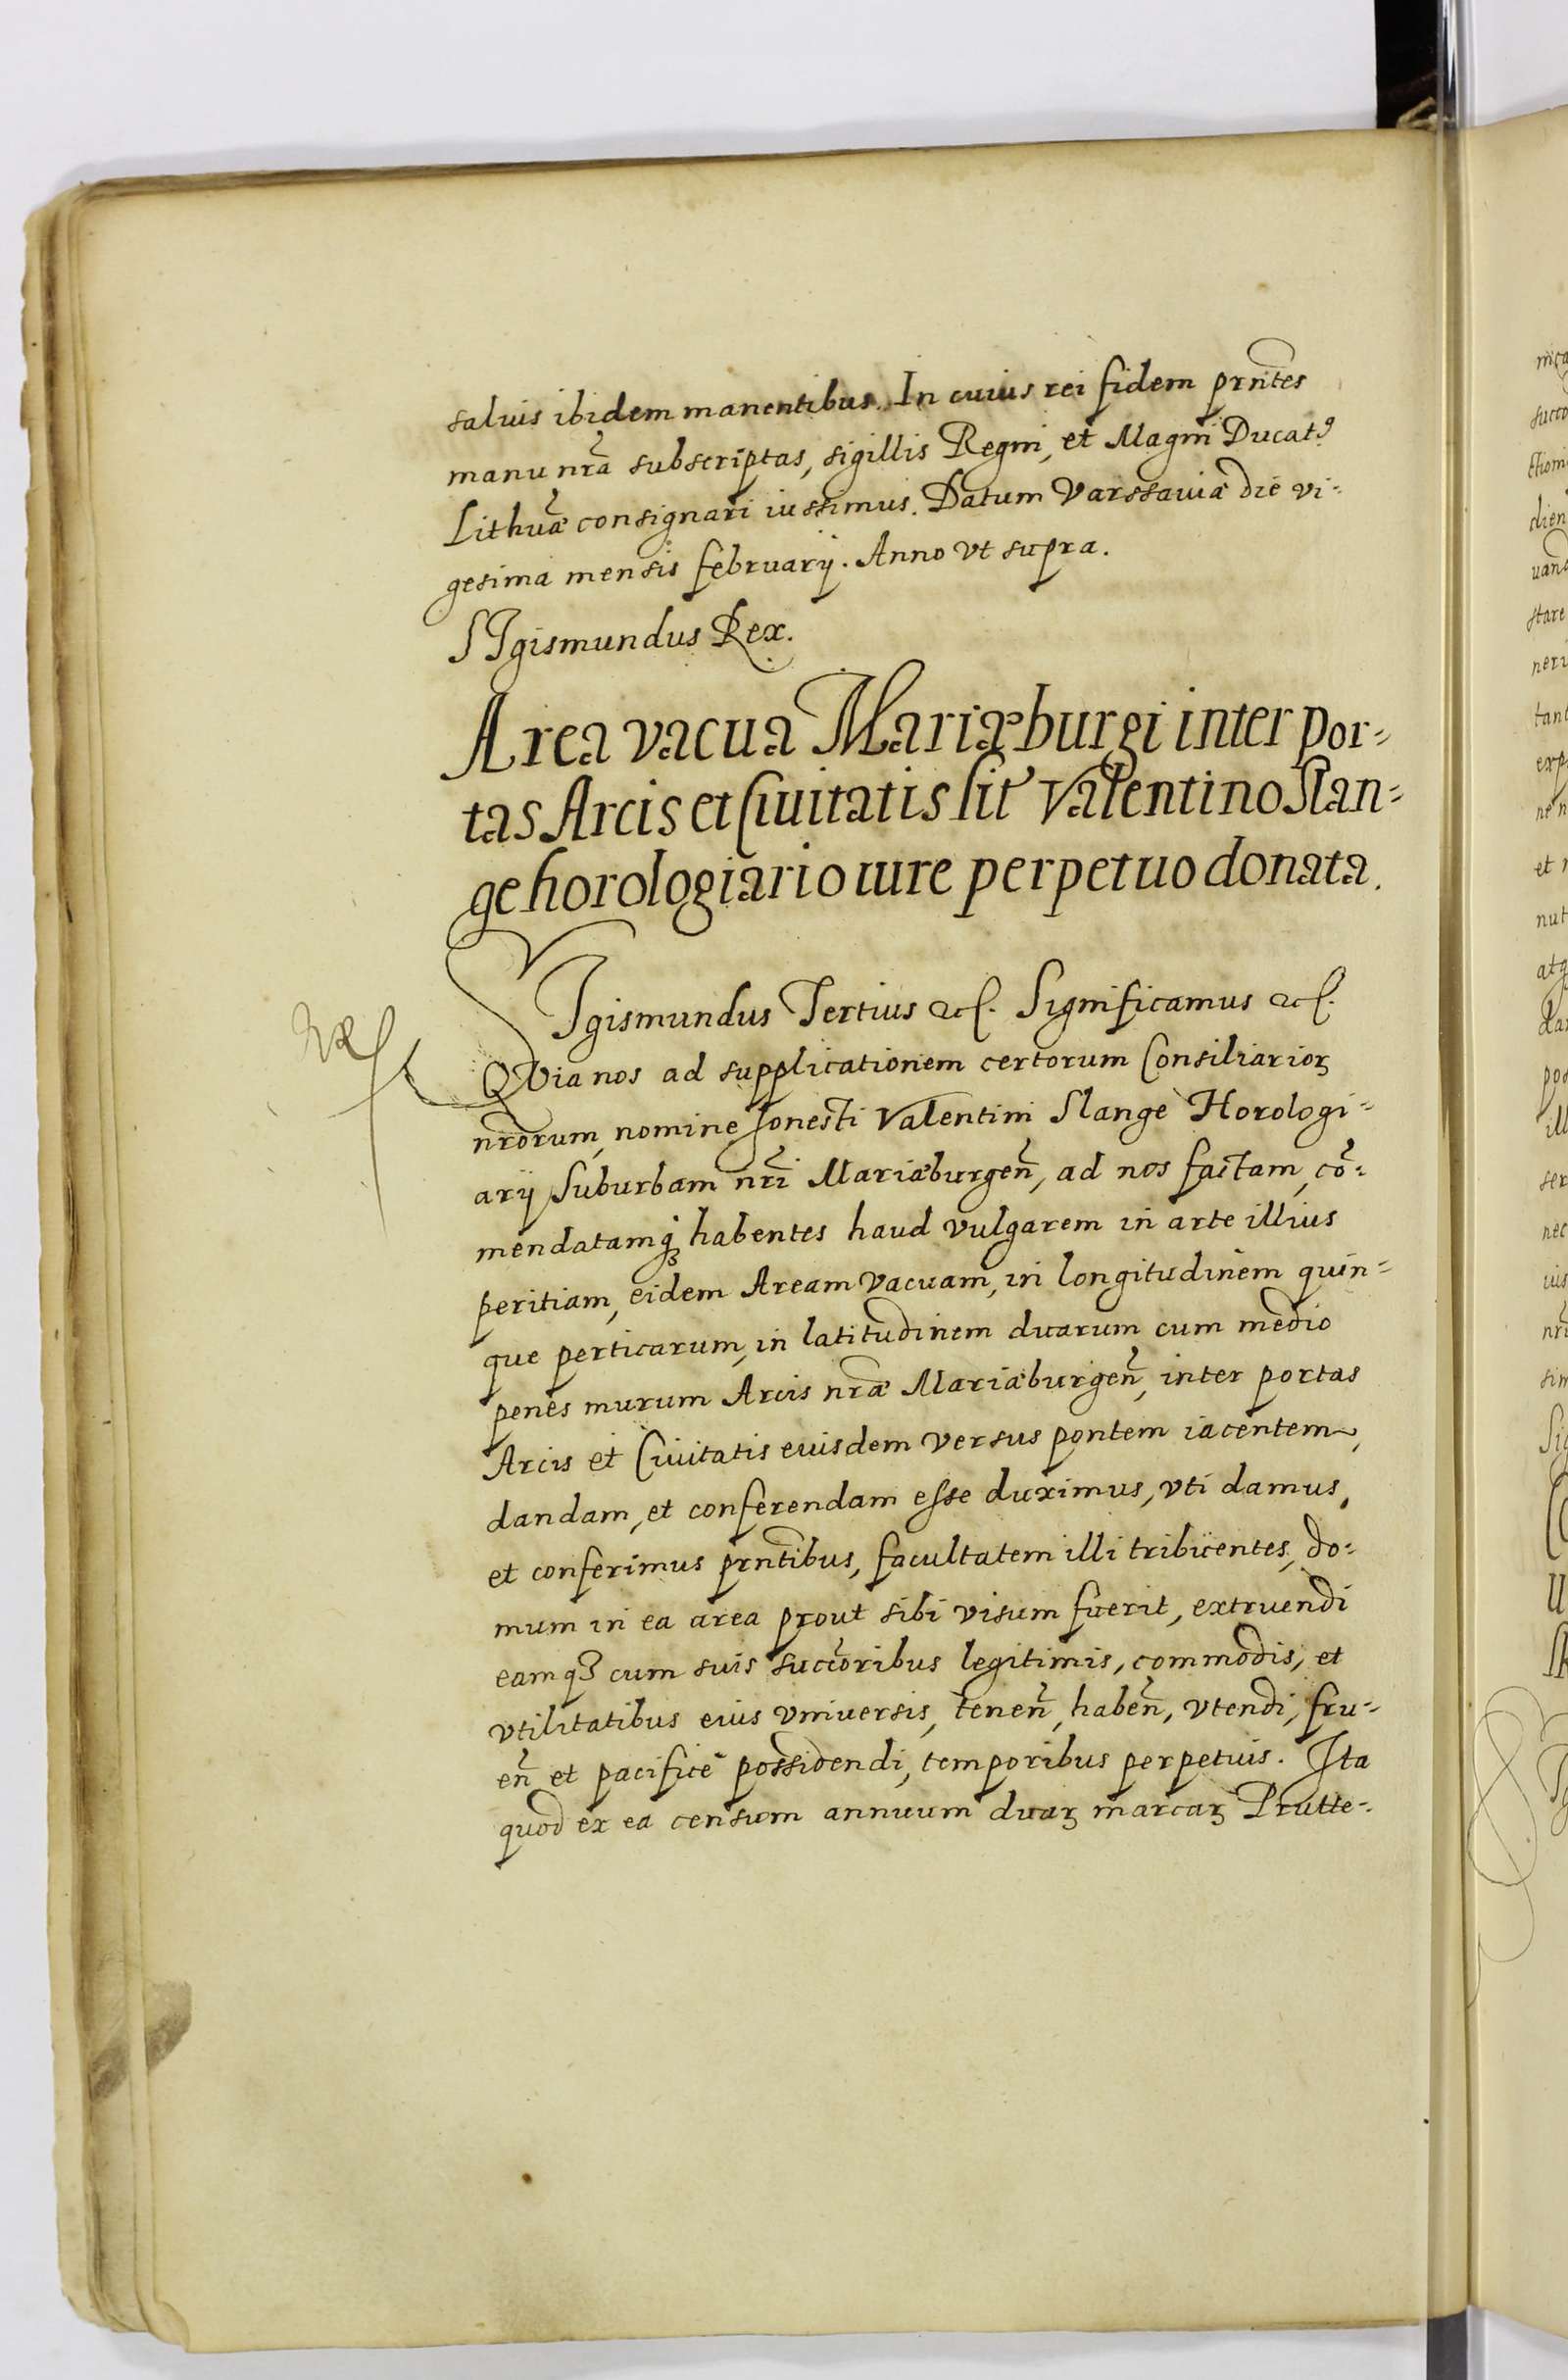 saluis ibidem manentibus. In cuius rei fidem prñtes
manu nrã subscriptas, sigillis Regni, et Magni Ducatꝰ
Lithuæ̃ consignari iussimus. Datum Varssauiæ die vi-
gesima mensis februarij. Anno vt supra.
SIgismundus Rex.
Area vacua Mariæburgi inter por-
tas Arcis et Ciuitatis sit Valentino Slan-
ge horologiario iure perpetuo donata.
SIgismundus Tertius &c. Significamus &c.
QVia nos ad supplicationem certorum Consiliarioꝝ
nrõrum, nomine honesti Valentini Slange Horologi-
arij Suburbani nrĩ Mariæburgeñ, ad nos factam, cõ-
mendatamq̃ habentes haud vulgarem in arte illius
peritiam, eidem Aream vacuam, in longitudinem quin-
que perticarum, in latitudinem duarum cum medio
penes murum Arcis nræ̃ Mariæburgeñ, inter portas
Arcis et Ciuitatis euisdem versus pontem iacentem,
dandam, et conferendam esse duximus, vti damus,
et conferimus prñtibus, facultatem illi tribuentes, do-
mum in ea area prout sibi visum fuerit, extruendi
eamqꝫ cum suis succõribus legitimis, commodis, et
vtilitatibus eius vniuersis, teneñ, habeñ, vtendi, fru-
eñ et pacifice possidendi, temporibus perpetuis. Ita
quod ex ea censum annuum duaꝝ marcaꝝ Prutte-